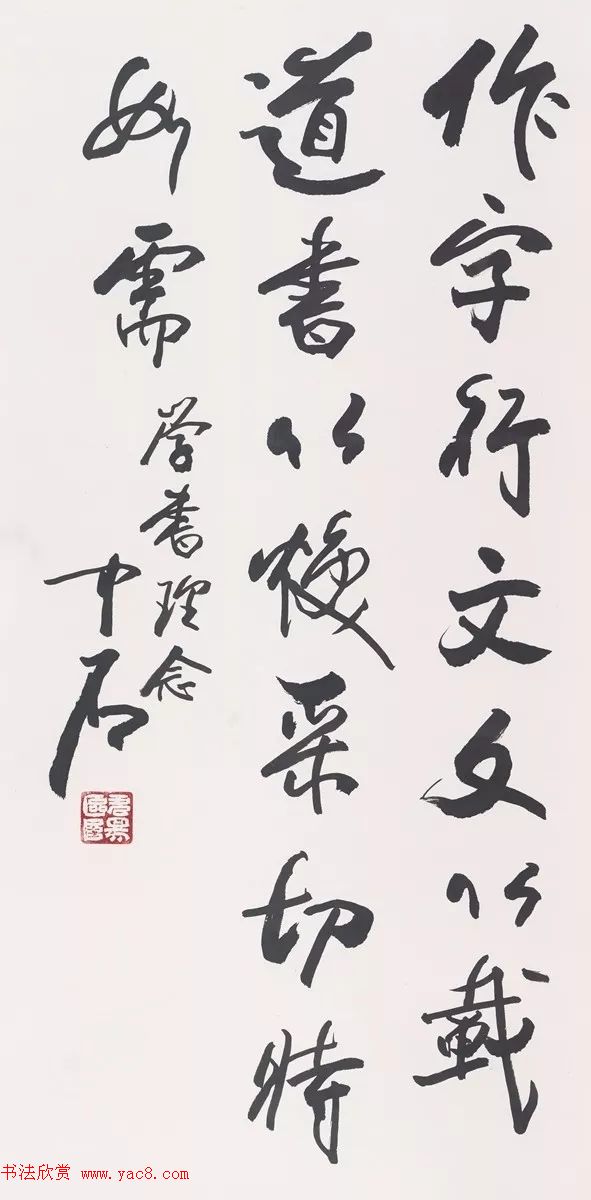 作字行文文以載
道書以焕采切時
如需
学書理念
中石
书法欣赏 www.yac8.com